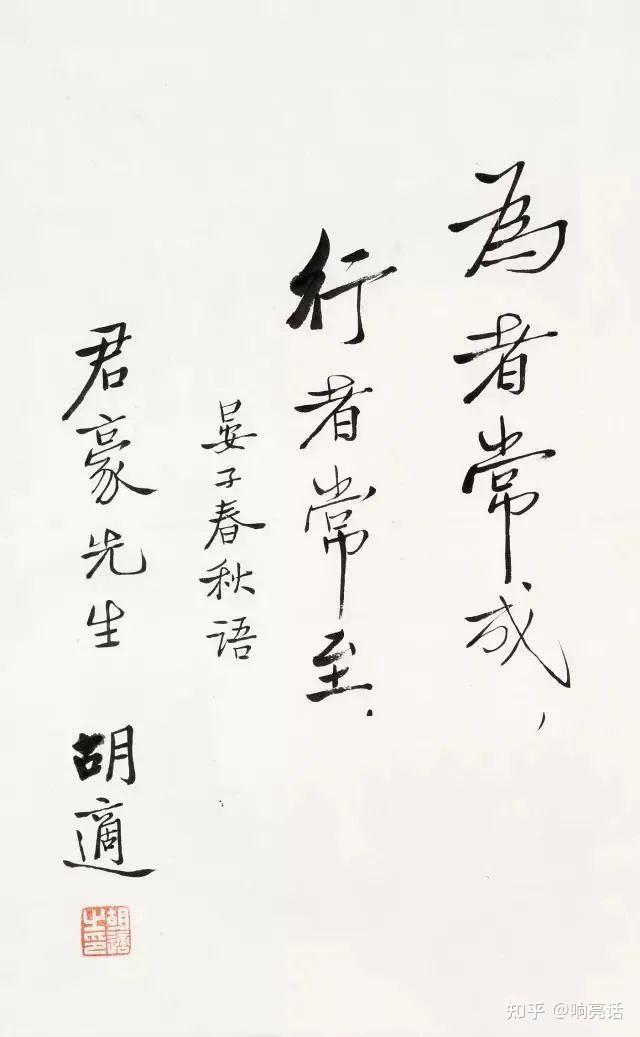 為者常成，
行者常至．
晏子春秋语
君豪先生 胡適
胡適之印
知乎 @响亮话